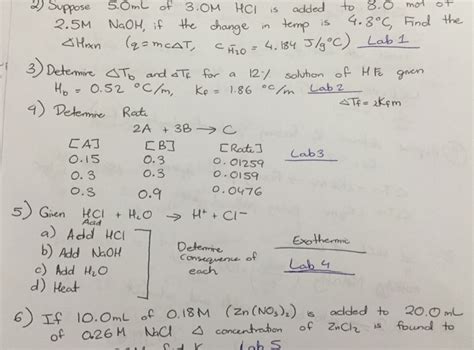 2) Suppose 5.0mL of 3.0M HCl is added to 8.0 mol of
2.5M NaOH, if the change in temp is 4.3°C, Find the
ΔHrxn (q=mcΔT, C H2O = 4.184 J/g°C) Lab 1
3) Determine ΔTb and ΔTf for a 12% solution of HF given
Hb = 0.52 °C/m, Kf = 1.86 °C/m Lab 2
ΔTf = iKfm
4) Determine Rate
2A + 3B → C
[A] [B] [Rate]
0.15 0.3 0.01259 Lab3
0.3 0.3 0.0159
0.3 0.9 0.0476
5) Given HCl + H2O → H+ + Cl-
Acid
a) Add HCl
b) Add NaOH
c) Add H2O
d) Heat
Determine
Consequence of
each
Exothermic
Lab 4
6) If 10.0mL of 0.18M (Zn(NO3)2) is added to 20.0mL
of 0.26M NaCl Δ concentration of ZnCl2 is found to
Lab 5